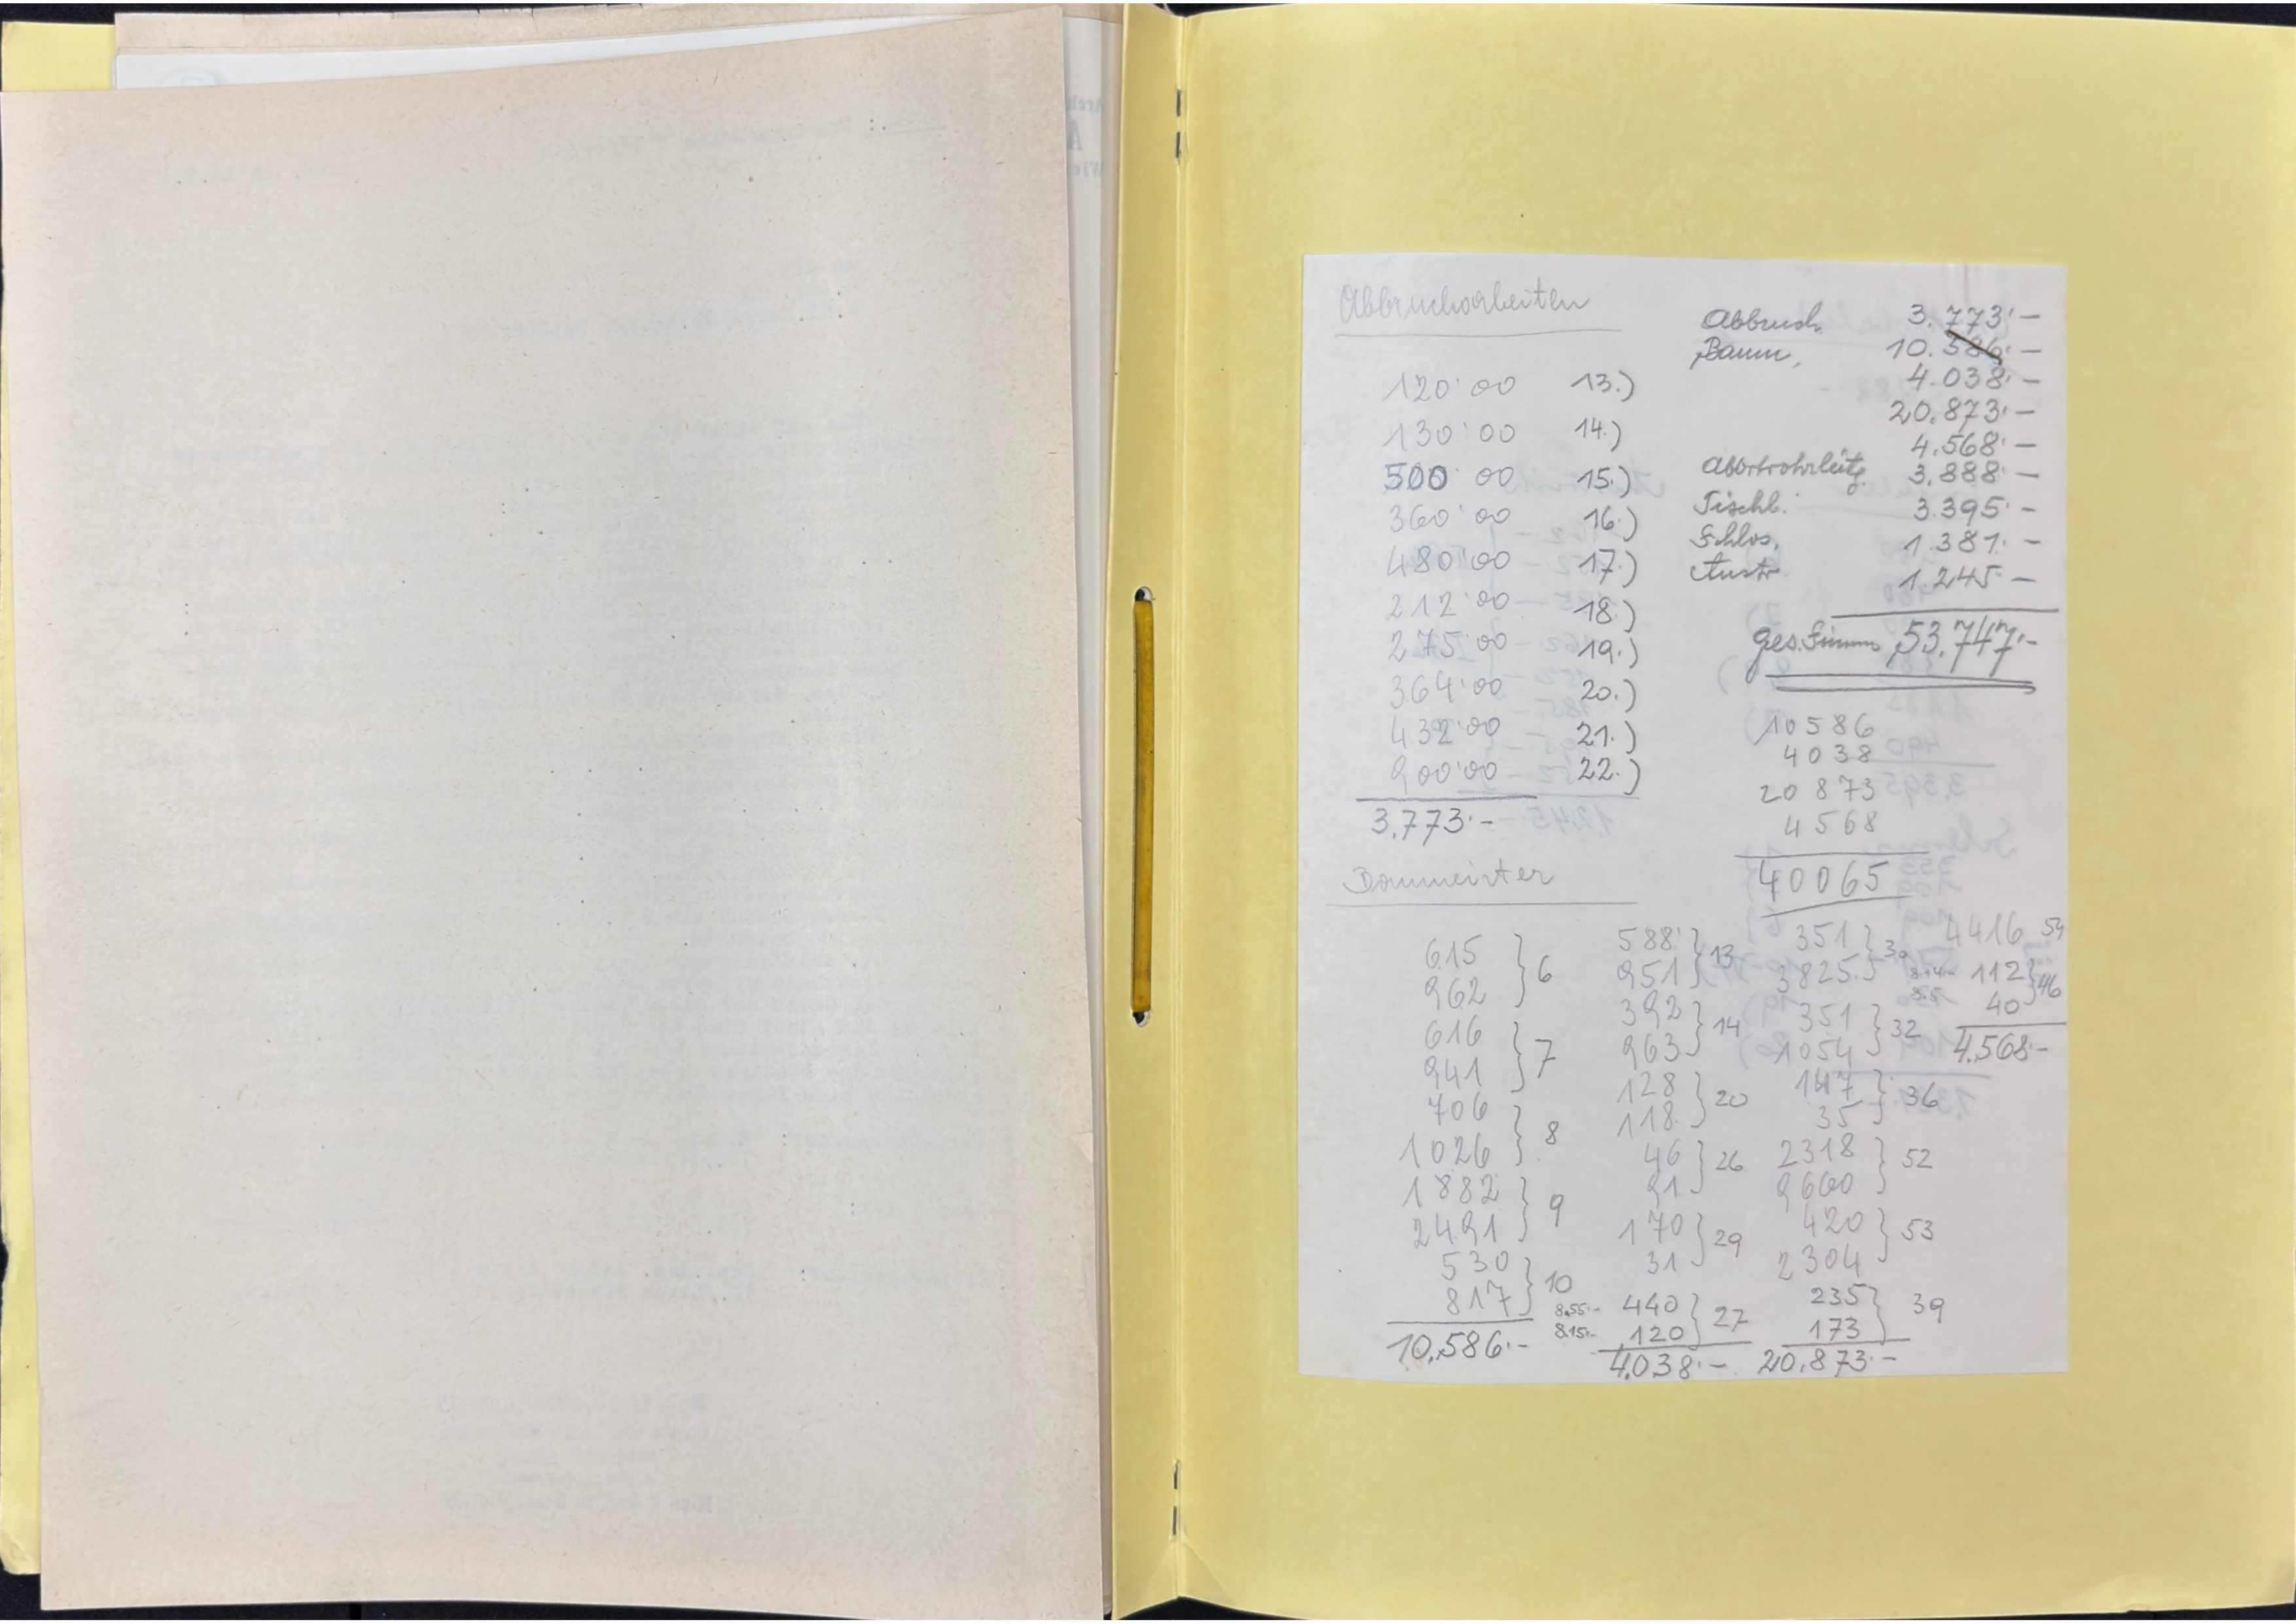 Abbrucharbeiten
120'00 13.)
130'00 14.)
500'00 15.)
360'00 16.)
480'00 17.)
212'00 18.)
275'00 19.)
364'00 20.)
432'00 21.)
900'00 22.)
3.773'-
Abbruch. 3.773'-
Baum, 10.586'-
4.038'-
20.873'-
4.568'-
Abortrohrleitg. 3.888'-
Tischl. 3.395'-
Schlos. 1.381'-
Anstr. 1.245'-
ges. Summe 53.747'-
10586
4038
20873
4568
40065
Baumeister
615
962 } 6
616
941 } 7
706
1026 } 8
1882
2491 } 9
530
817 } 10
10.586'-
588
951 } 13
392
963 } 14
128
118 } 20
46
91 } 26
170
31 } 29
8.55'- 440
8.15'- 120 } 27
4.038'-
351
3825 } 30
351
1054 } 32
147
35 } 36
2318
9660 } 52
420
2304 } 53
235
173 } 39
20.873'-
4416 54
112
40 } 46
4.568'-